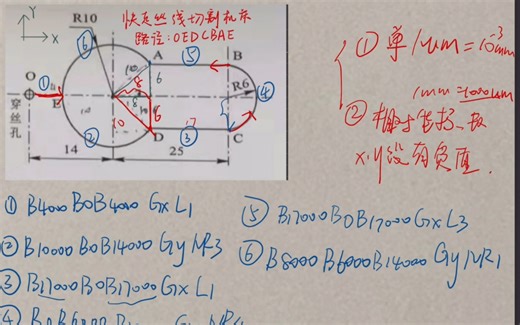 Y
X
R10
快走丝线切割机床
路径:OEDCBAE
⑥
⑤
A
B
10
6
8
R6
④
①
O
E
8
6
10
穿丝孔
②
D
③
17
C
14
25
① 单 1μm=10⁻³mm
1mm=1000μm
②
x.y没有负值.
① B4000B0B4000GxL1
② B10000B0B14000GyNR3
③ B17000B0B17000GxL1
④ B0B6000
⑤ B17000B0B17000GxL3
⑥ B8000B6000B14000GyNR1